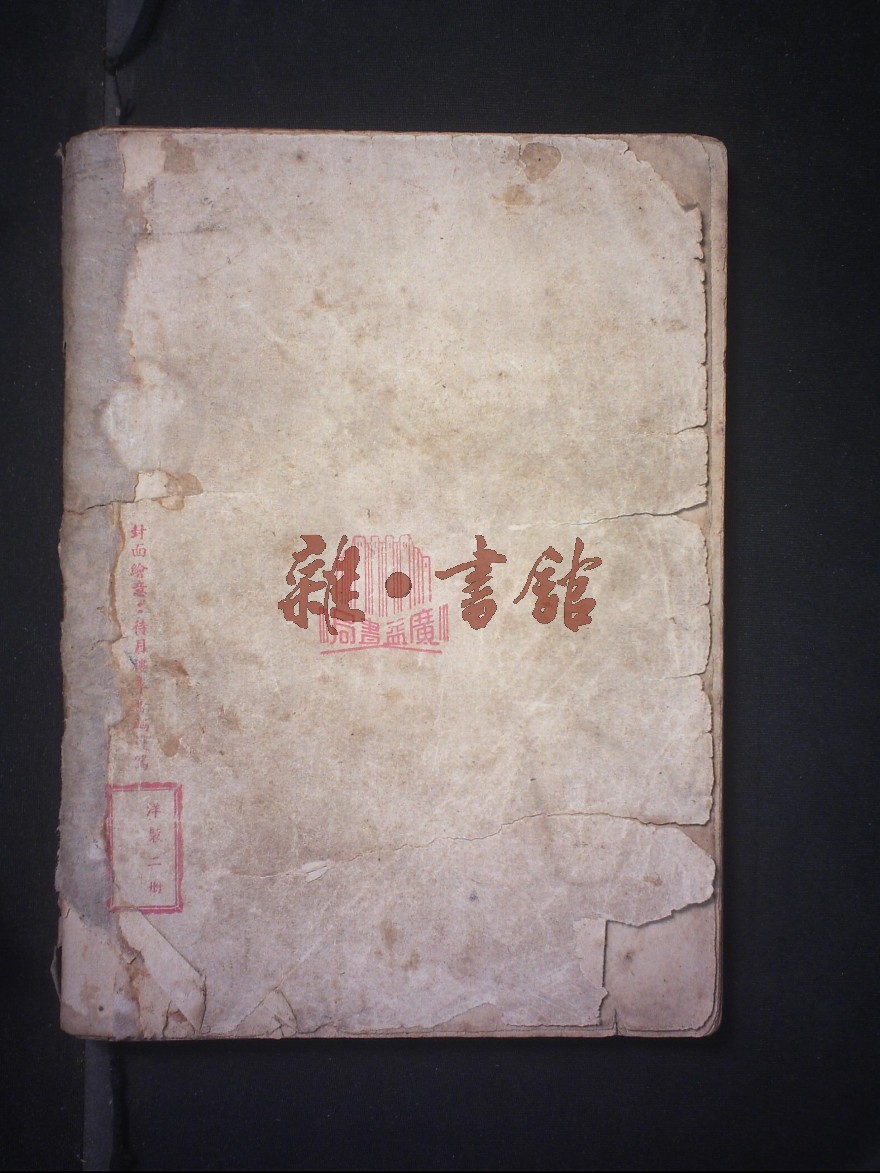 封面繪意：待月
雜•書館
廣益書局
洋裝二冊